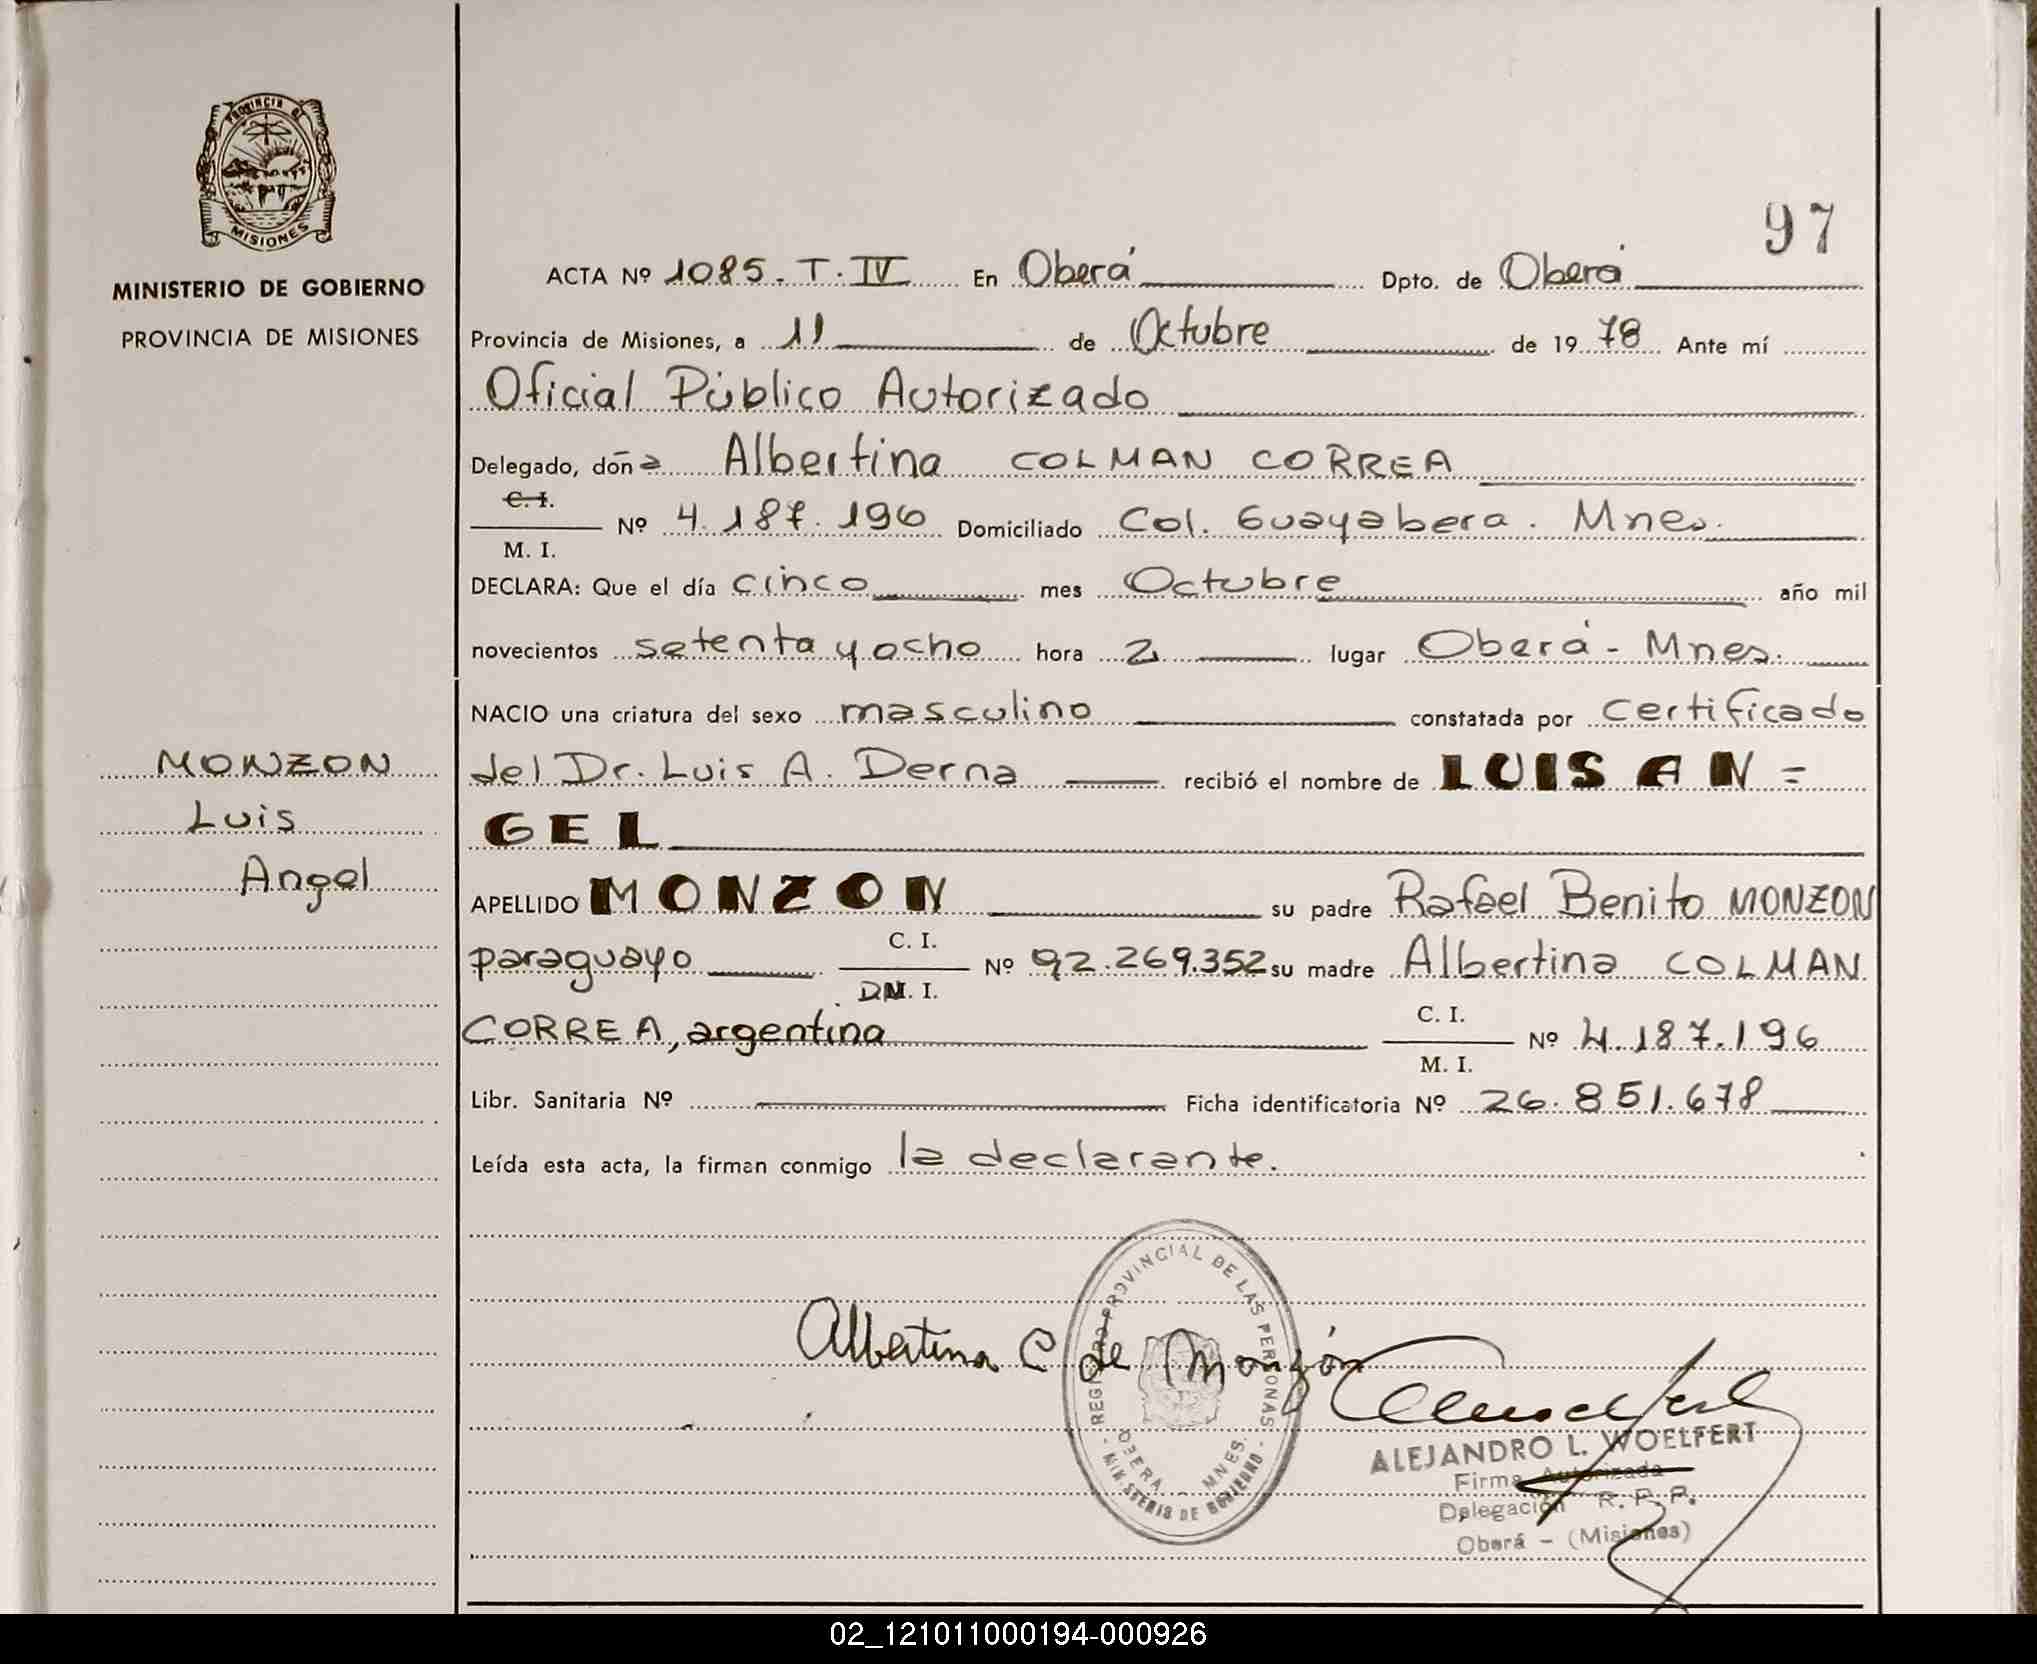 PROVINCIA DE
MISIONES
MINISTERIO DE GOBIERNO
PROVINCIA DE MISIONES
97
ACTA Nº 1085. T. IV En Oberá Dpto. de Oberá
Provincia de Misiones, a 11 de Octubre de 1978 Ante mí
Oficial Público Autorizado
Delegado, doña Albertina COLMAN CORREA
C. I.
M. I. Nº 4.187.196 Domiciliado Col. Guayabera. Mnes.
DECLARA: Que el día cinco mes Octubre año mil
novecientos setenta y ocho hora 2 lugar Oberá - Mnes.
NACIO una criatura del sexo masculino constatada por certificado
del Dr. Luis A. Derna recibió el nombre de LUIS AN=
GEL
MONZON
Luis
Angel
APELLIDO MONZON su padre Rafael Benito MONZON
paraguayo C. I. DNI. Nº 92.269.352 su madre Albertina COLMAN
CORREA, argentina C. I. M. I. Nº 4.187.196
Libr. Sanitaria Nº Ficha identificatoria Nº 26.851.678
Leída esta acta, la firman conmigo la declarante.
Albertina C de Monzón
REGISTRO PROVINCIAL DE LAS PERSONAS
OBERA - MNES.
MINISTERIO DE GOBIERNO
ALEJANDRO L. WOELFERT
Firma Autorizada
Delegación R. P. P.
Oberá - (Misiones)
02_121011000194-000926